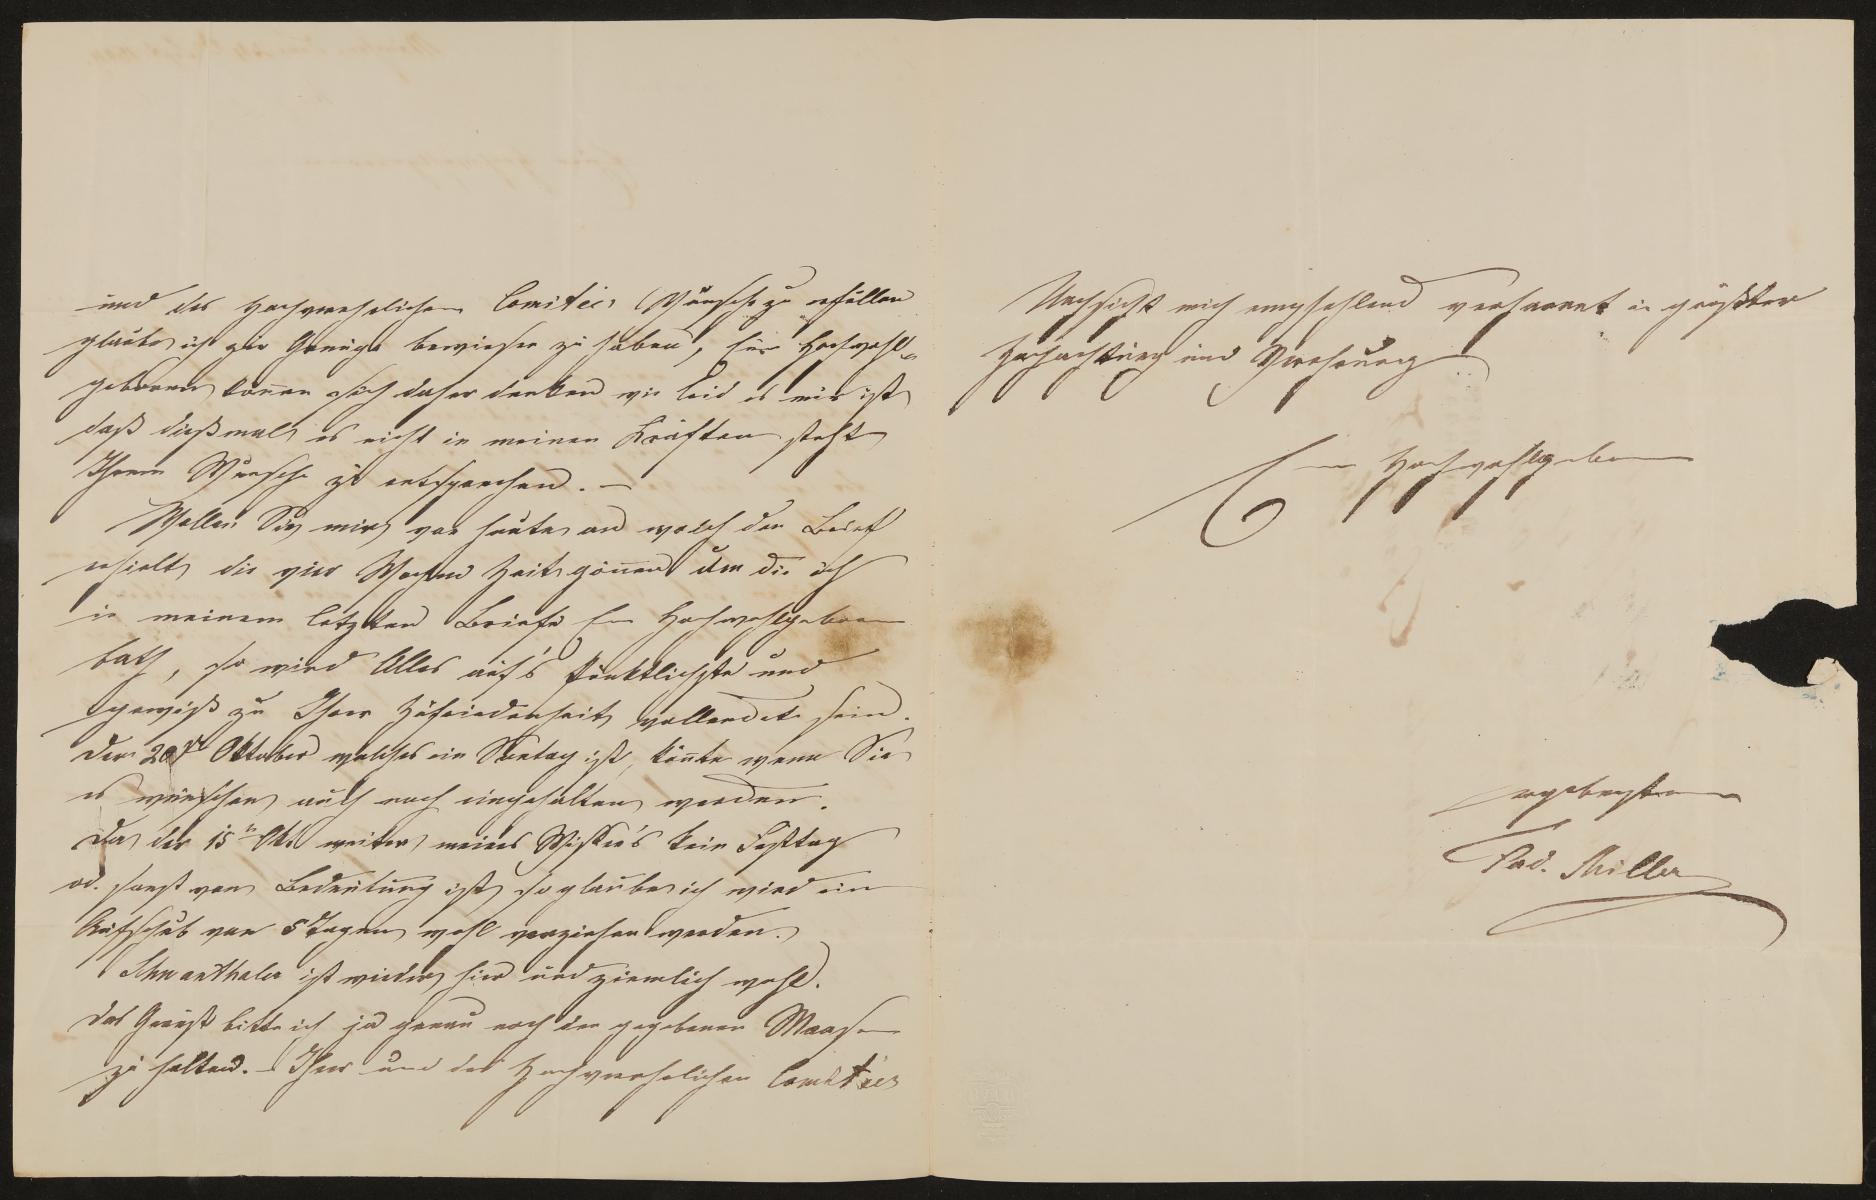 und des hochverehrlichen Comitées Wünsche zu erfüllen
glaube ich zur Genüge bewiesen zu haben, Euer Hochwohl-
geboren können sich daher denken wie leid es mir ist
daß dießmal es nicht in meinen Kräften steht
Ihrem Wunsche zu entsprechen. –
Wollen Sie mir von heute an welch den Brief
erhielt die vier Wochen Zeit gönnen um die ich
in meinem letzten Briefe Eu Hochwohlgeboren
bath, so wird Alles auf's Pünktlichste und
gewiß zu Ihrer Zufriedenheit vollendet sein.
Der 20te Oktober welches ein Sontag ist, könnte wenn Sie
es wünschen auch noch eingehalten werden.
Da der 15te Okt. weiter meines Wissen's kein Festtag
od. sonst von Bedeutung ist, so glaube ich wird ein
Aufschub von 5 Tagen wohl verziehen werden.
Schwanthaler ist wieder hier und ziemlich wohl.
Das Gerüst bitte ich ja genau nach den gegebenen Maasen
zu halten. – Ihrer und des Hochverehrlichen Comitées
Nachsicht mich empfehlend verharret in größter
Hochachtung und Verehrung
Euer Hochwohlgeboren
ergebenster
Ferd. Miller